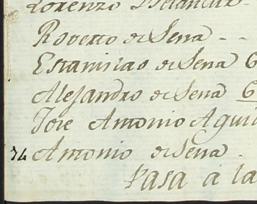 Lorenzo Betancur
Roverto de Sena - -
Estanislao de Sena 6
Alejandro de Sena 6
Jose Antonio Agui
34 Antonio de Sena
Pasa a la